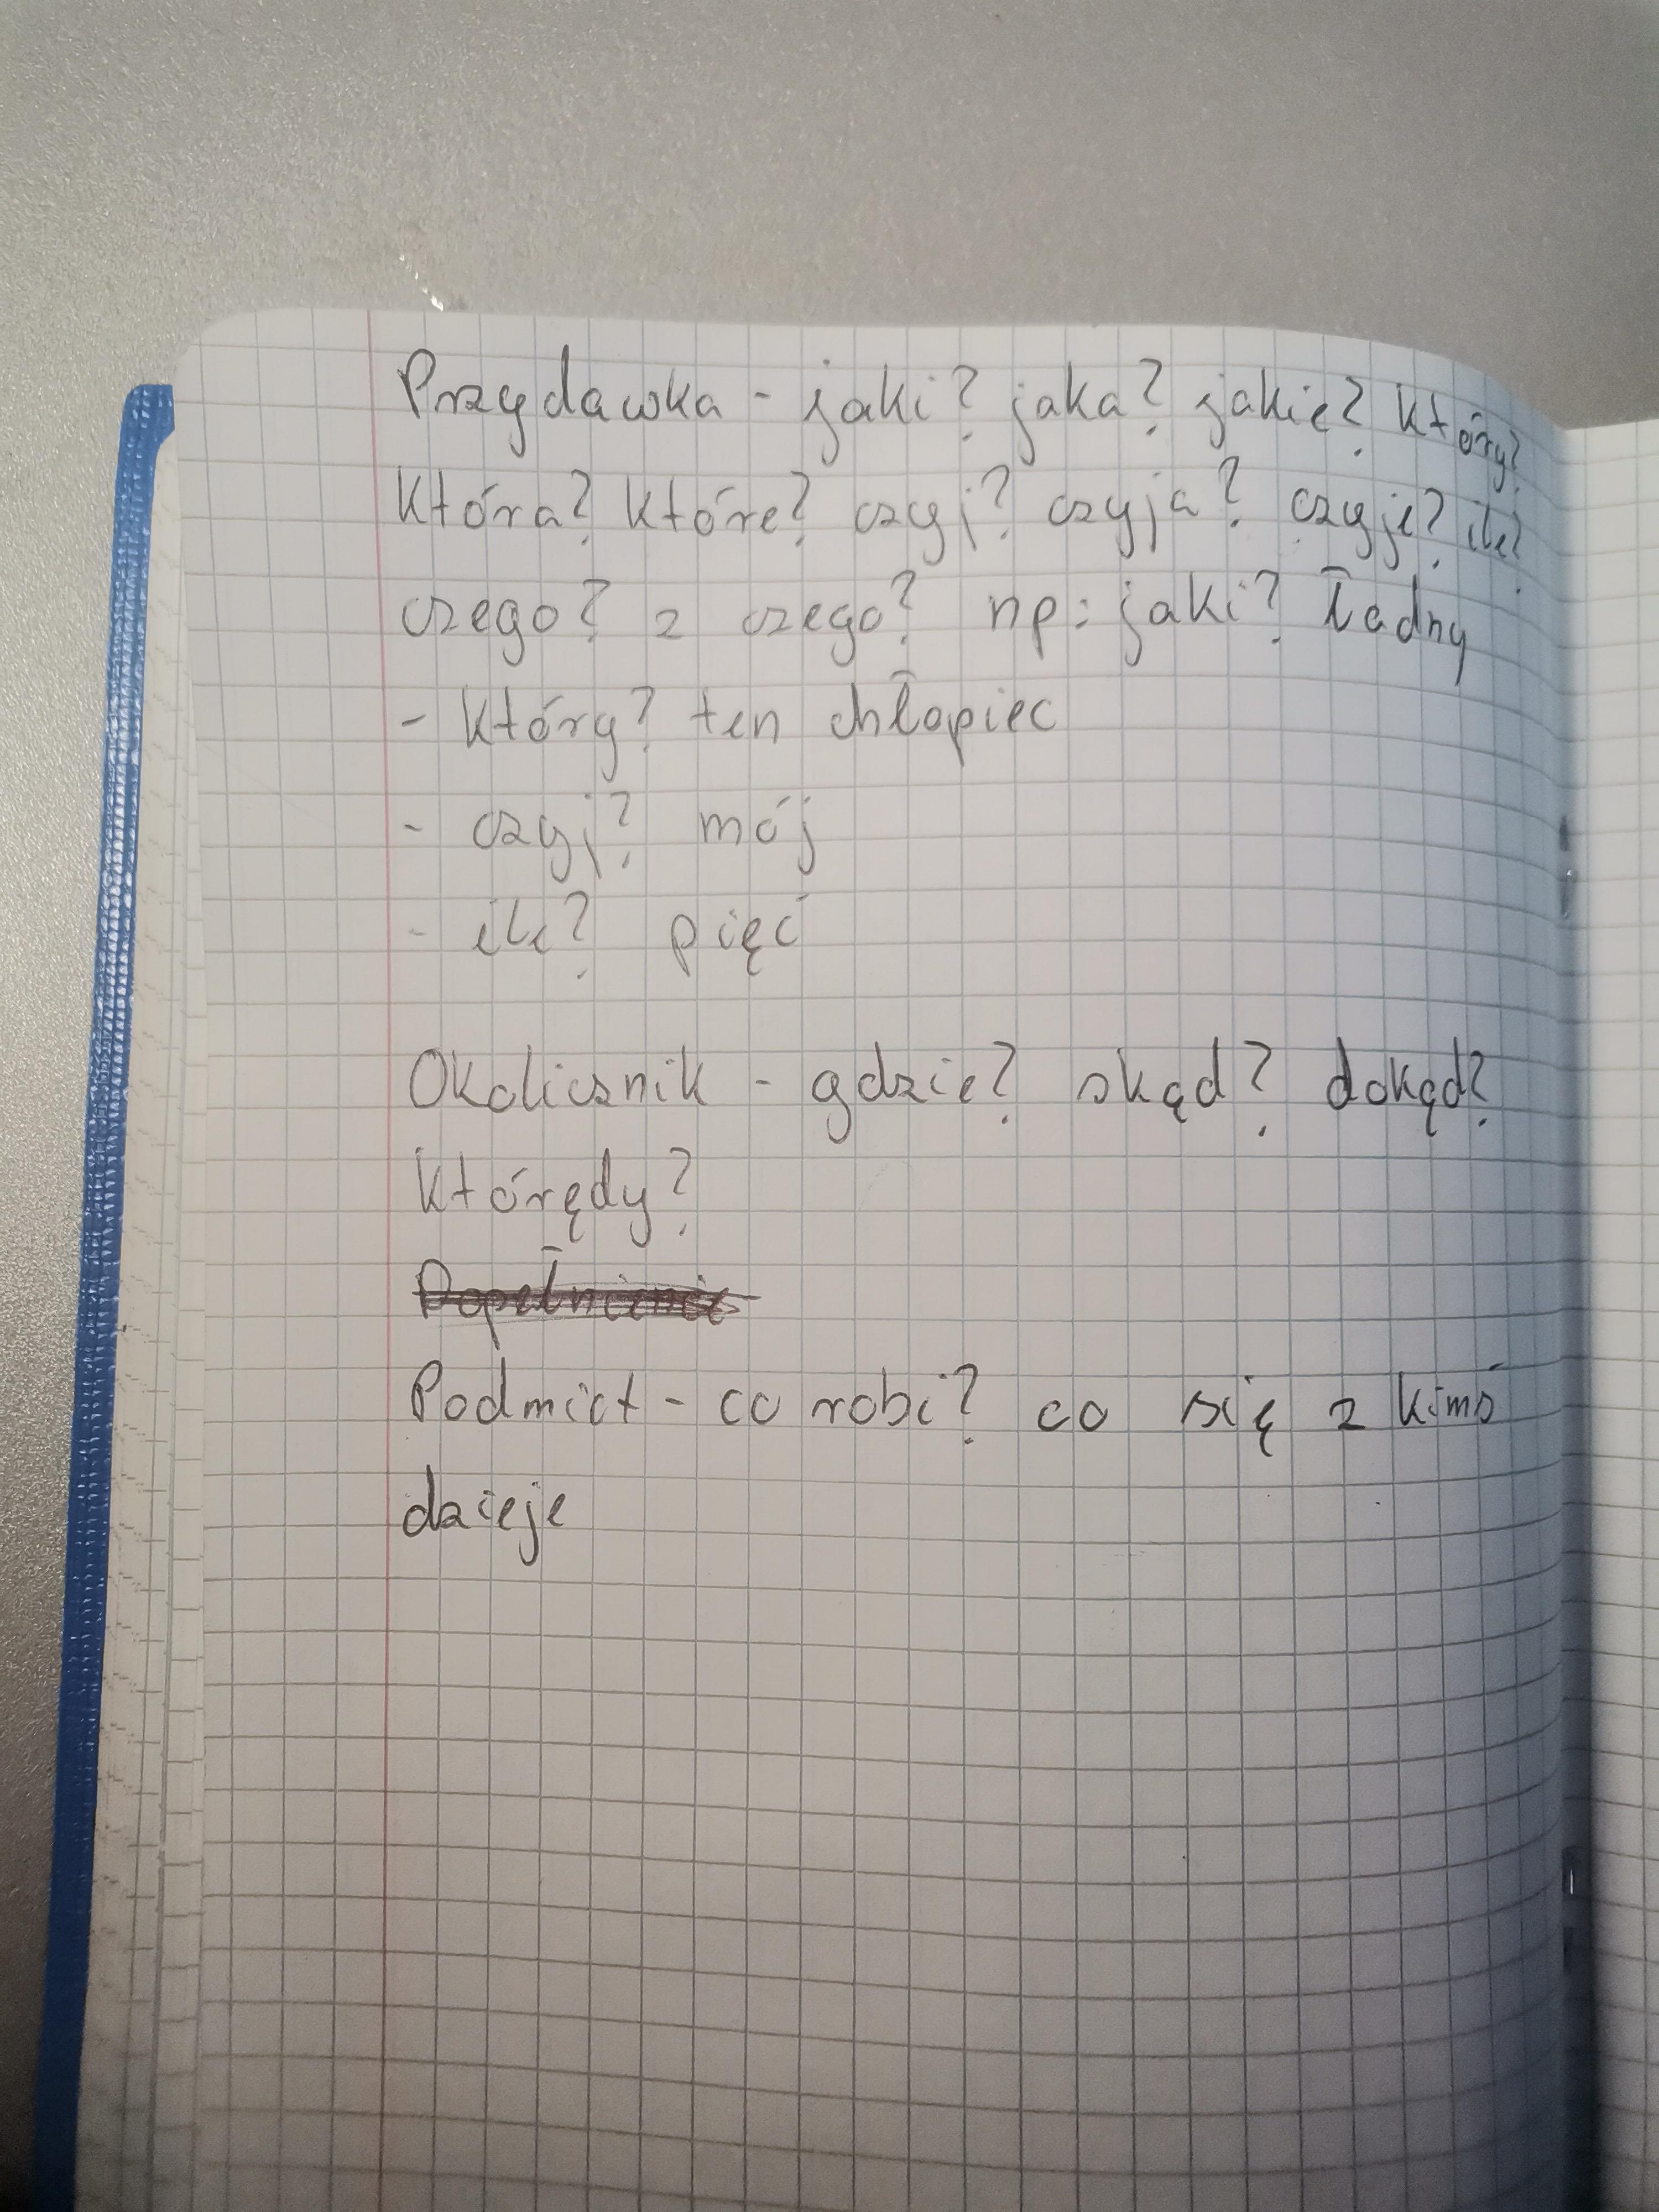 Przydawka - jaki? jaka? jakie? który?
która? które? czyj? czyja? czyje? ile?
czego? z czego? np: jaki? ładny
- który? ten chłopiec
- czyj? mój
- ile? pięć
Okolicznik - gdzie? skąd? dokąd?
którędy?
Dopełnienie
Podmiot - co robi? co się z kimś
dzieje